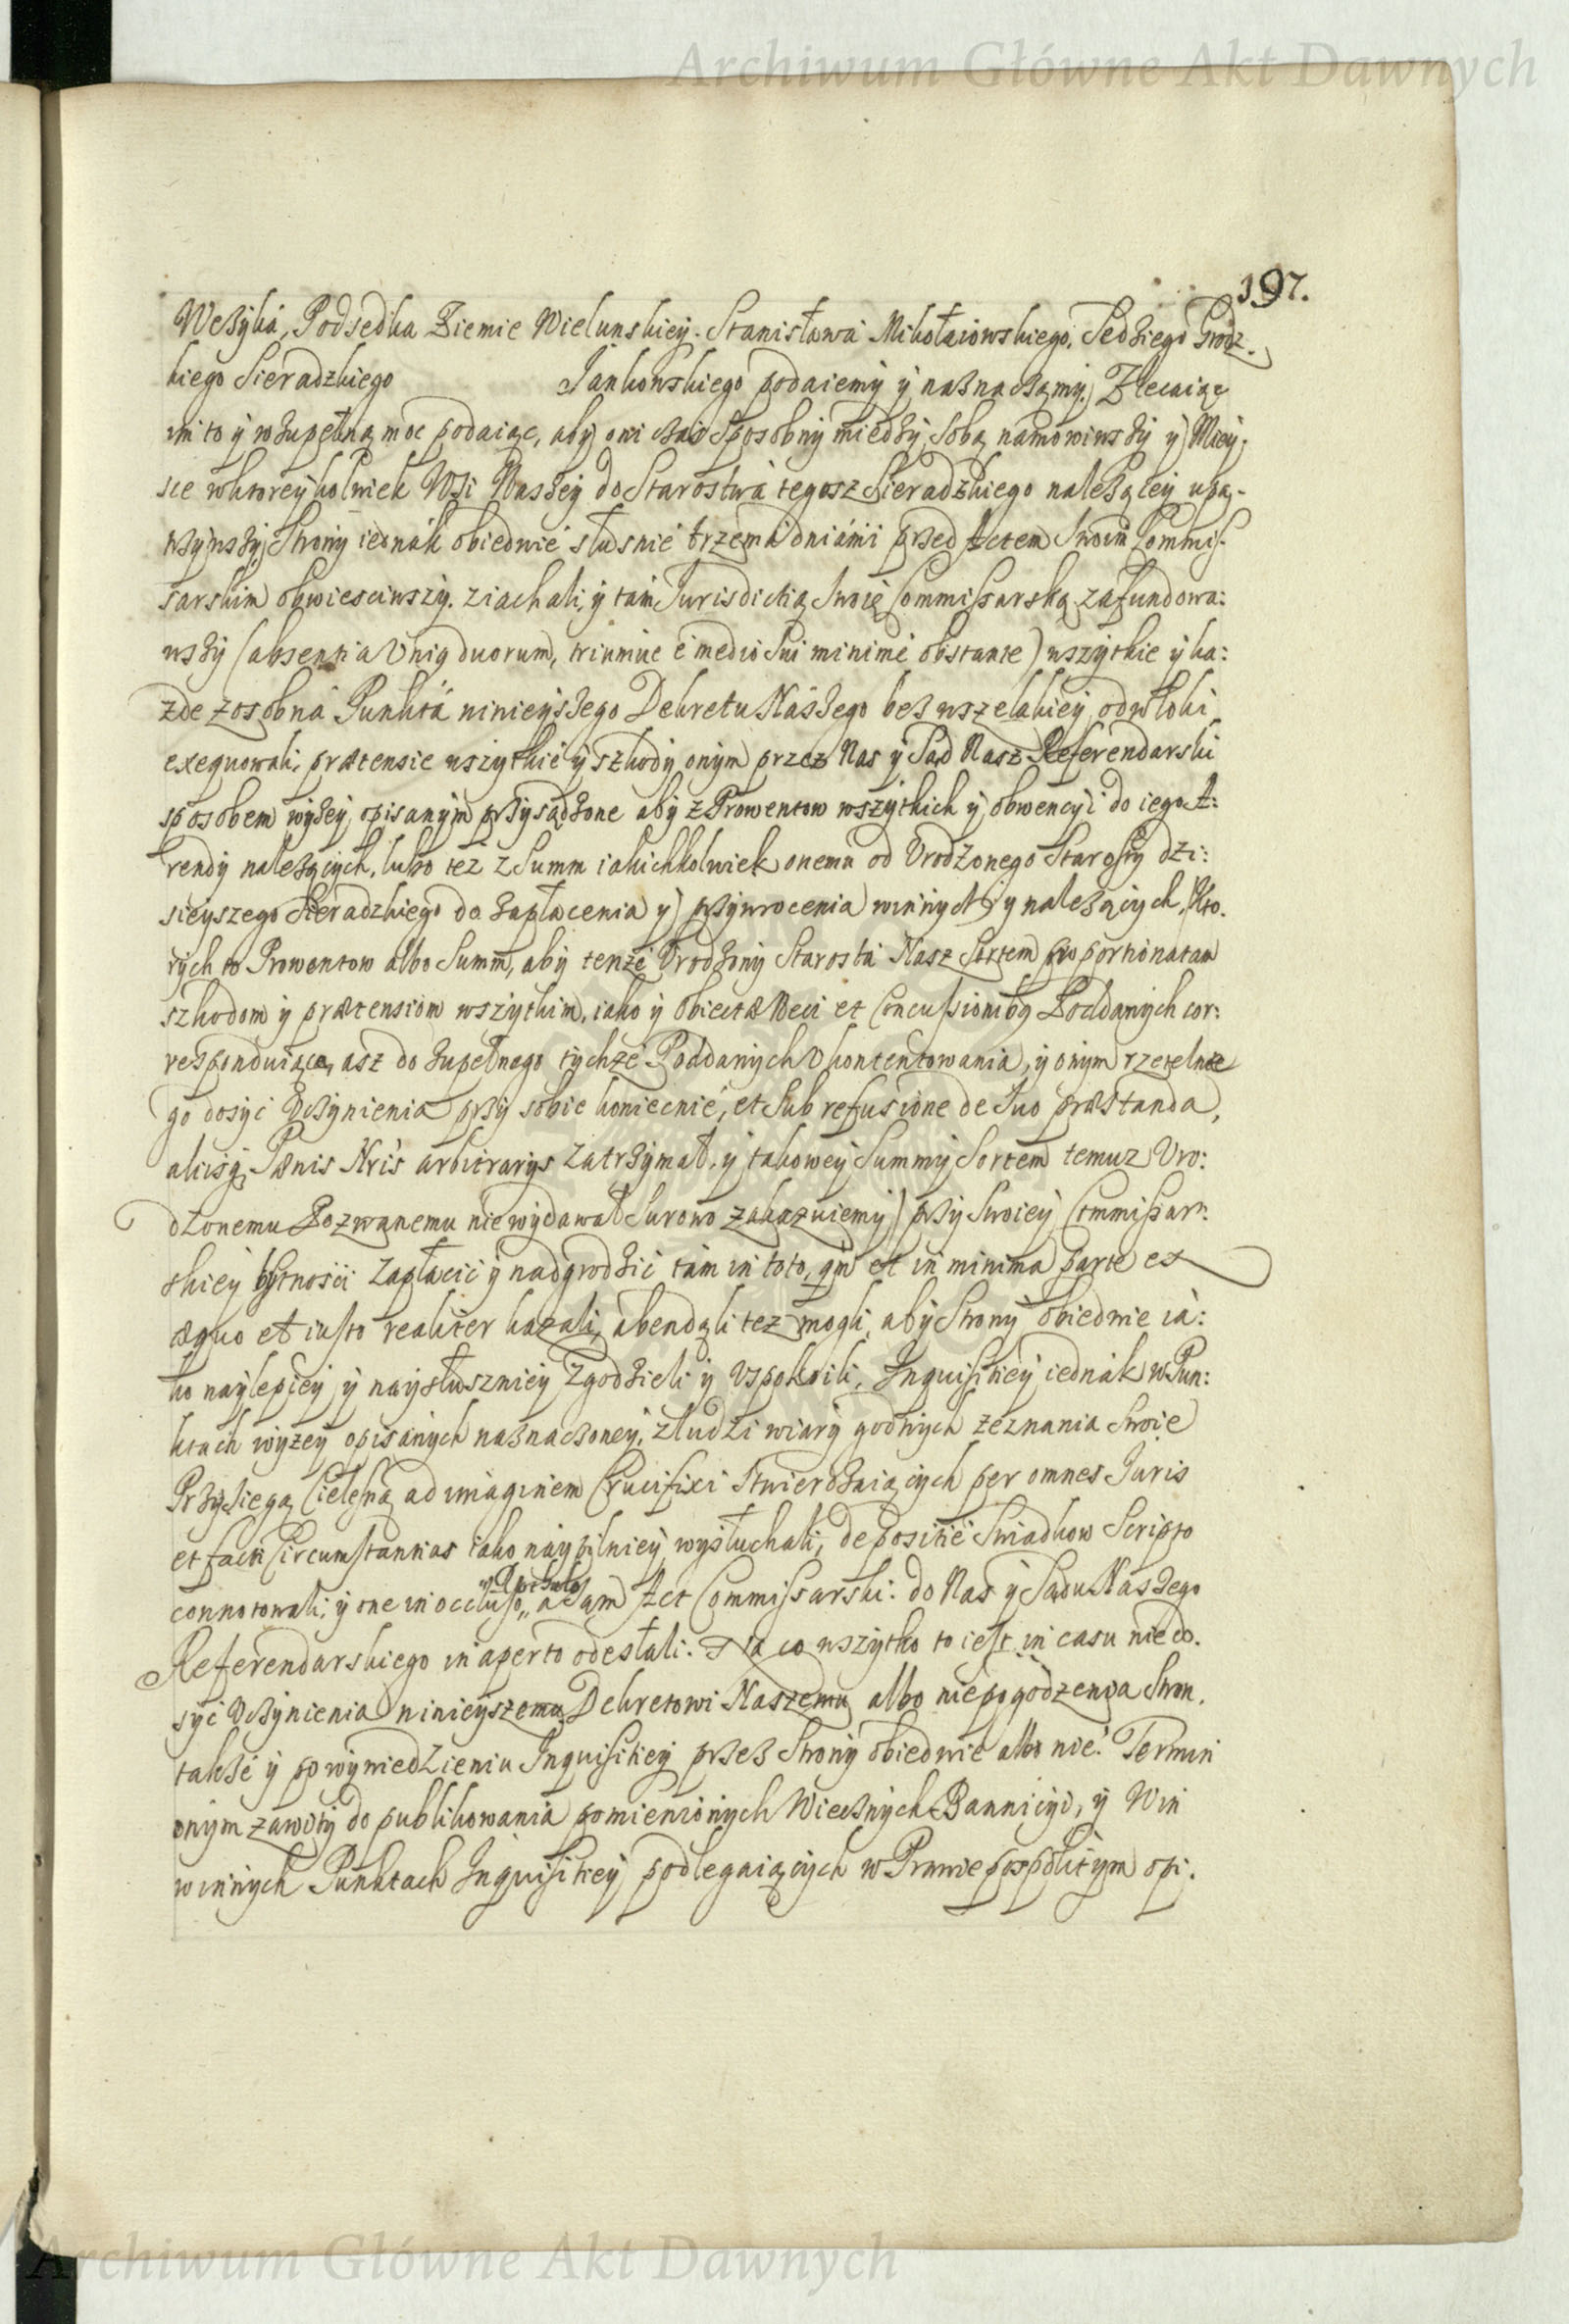 Archiwum Główne Akt Dawnych
197.
Weżyka, Podsedka Ziemie Wielunskiey. Stanisława Mikołaiowskiego, Sedziego Grodz-
kiego Sieradzkiego Jankowskiego podaiemy y naznaczamy, Zlecaiąc
im to y wzupełną moc podaiąc, aby oni czas sposobny miedzy sobą namowiwszy y Miey-
sce wktoreykolwiek Wsi Naszey do Starostwa tegosz Sieradzkiego należącey upa-
trzywszy, Strony iednak obiedwie słusnie trzema dniami przed Actem Swoim Commis-
sarskim obwiesciwszy. ziachali, y tam Jurisdictią Swoię Commissarską zafundowa:
wszy (absentia Unig duorum, triumue e medio sui minime obstante) wszytkie y ka:
zde zosobna Punkta ninieyszego Dekretu Naszego bez wszelakiey odwłoki
exequowali, prætensie wszytkie y szkody onym przez Nas y Sąd Nasz Referendarski
sposobem wyżey opisanym przysądzone aby z Prowentow wszytkich y obwencyi do iego A:
rendy należących, lubo też z Summ iakichkolwiek onemu od Urodzonego Starosty dzi:
sieyszego Sieradzkiego do zapłacenia y przywrocenia winnych y należących, Kto-
rych to Prowentow albo Summ, aby tenże Urodzony Starosta Nasz Sortem proportionatam
szkodom y prætensiom wszytkim, iako y obiectæ Neci et Concussionibg Poddanych cor:
responduiącą asz do zupełnego tychże Poddanych Ukontentowania, y onym rzetelne
go dosyć Uczynienia przy sobie koniecnie, et sub refusione de suo præstanda,
alijsq Pænis Nris arbitrarys zatrzymał, y takowey Summy Sortem temuz Uro:
dzonemu Pozwanemu niewydawał Surowo zakazuiemy) przy Swoiey Commissar:
skiey bytności zapłacić y nadgrodzić tam in toto, qm et in minima parte ex
æquo et iusto realiter kazali, abendąli tez mogli, aby Strony obiedwie ia:
ko naylepiey y naysłuszniey Zgodzieli y Uspokoili, Inquisitiey iednak w Pun:
ktach wyżey opisanych naznaczoney, zludzi wiary godnych zeznania Swoie
Przysięgą Cielesną ad imaginem Crucifixi Stwierdzaiących per omnes Juris
et facti Circumstantias iako naypilniey wysłuchali, depositie Swiadkow Scripto
connotowali, y one in occluso, a Sam Act Commissarski: do Nas y Sądu Naszego
Referendarskiego in aperto odesłali. Na co wszytko to iest in casu niedo-
syć Uczynienia ninieyszemu Dekretowi Naszemu albo niepogodzenia Stron,
także y po wywiedzieniu Inquisitiey przez Strony obiedwie albo nie. Termin
onym zawity do publikowania pomienionych Wiecznych Bannicyi, y Win
winnych Punktach Inquisitiey podlegaiących w Prawie pospolitym opi:
Archiwum Główne Akt Dawnych